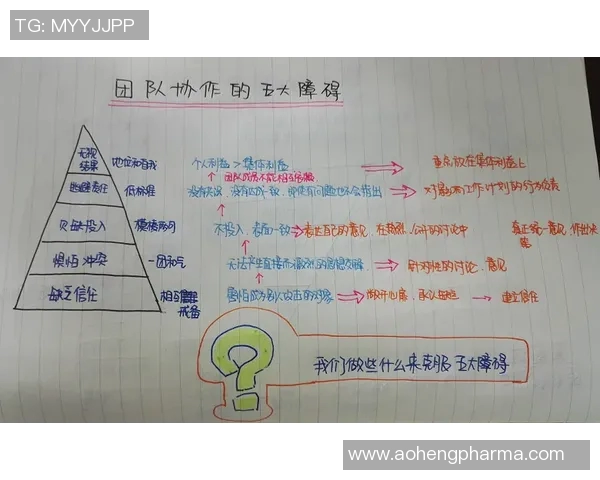 TG: MYYJJPP
团队协作的五大障碍
无视结果 地位和自我 个人利益 > 集体利益 重点放在集体利益上
团队成员不能相互
逃避责任 低标准 没有达成一致，即使有问题也不会指出 对影响工作计划的行为负责
欠缺投入 模棱两可 不投入，表面一致 表达自己的意见，在热烈、公开的讨论中 真正统一意见，作出决策
惧怕冲突 一团和气 无法产生直接而激烈的思想交锋 针对性的讨论、意见
缺乏信任 相互戒备 害怕成为别人攻击的对象 敞开心扉，承认缺点 建立信任
我们做些什么来克服五大障碍
www.aohengpharma.com